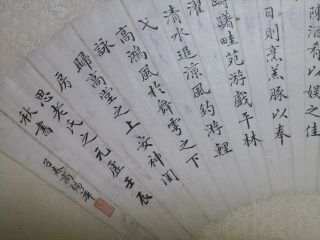 陳酒肴以娛之佳
日則烹羔豚以奉
躊躇畦苑游戲平林
濯
清水追涼風釣游鯉
弋
高鴻風於舞雩之下
詠歸
高堂之上安神閨
房
思老氏之元虛壬辰
秋書